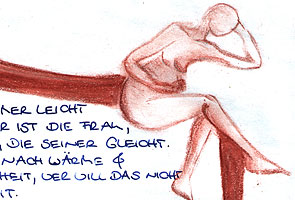 NER LEICHT
R IST DIE FRAU,
, DIE SEINER GLEICHT.
NACH WÄRME &
HEIT, WER WILL DAS NICHT
T.